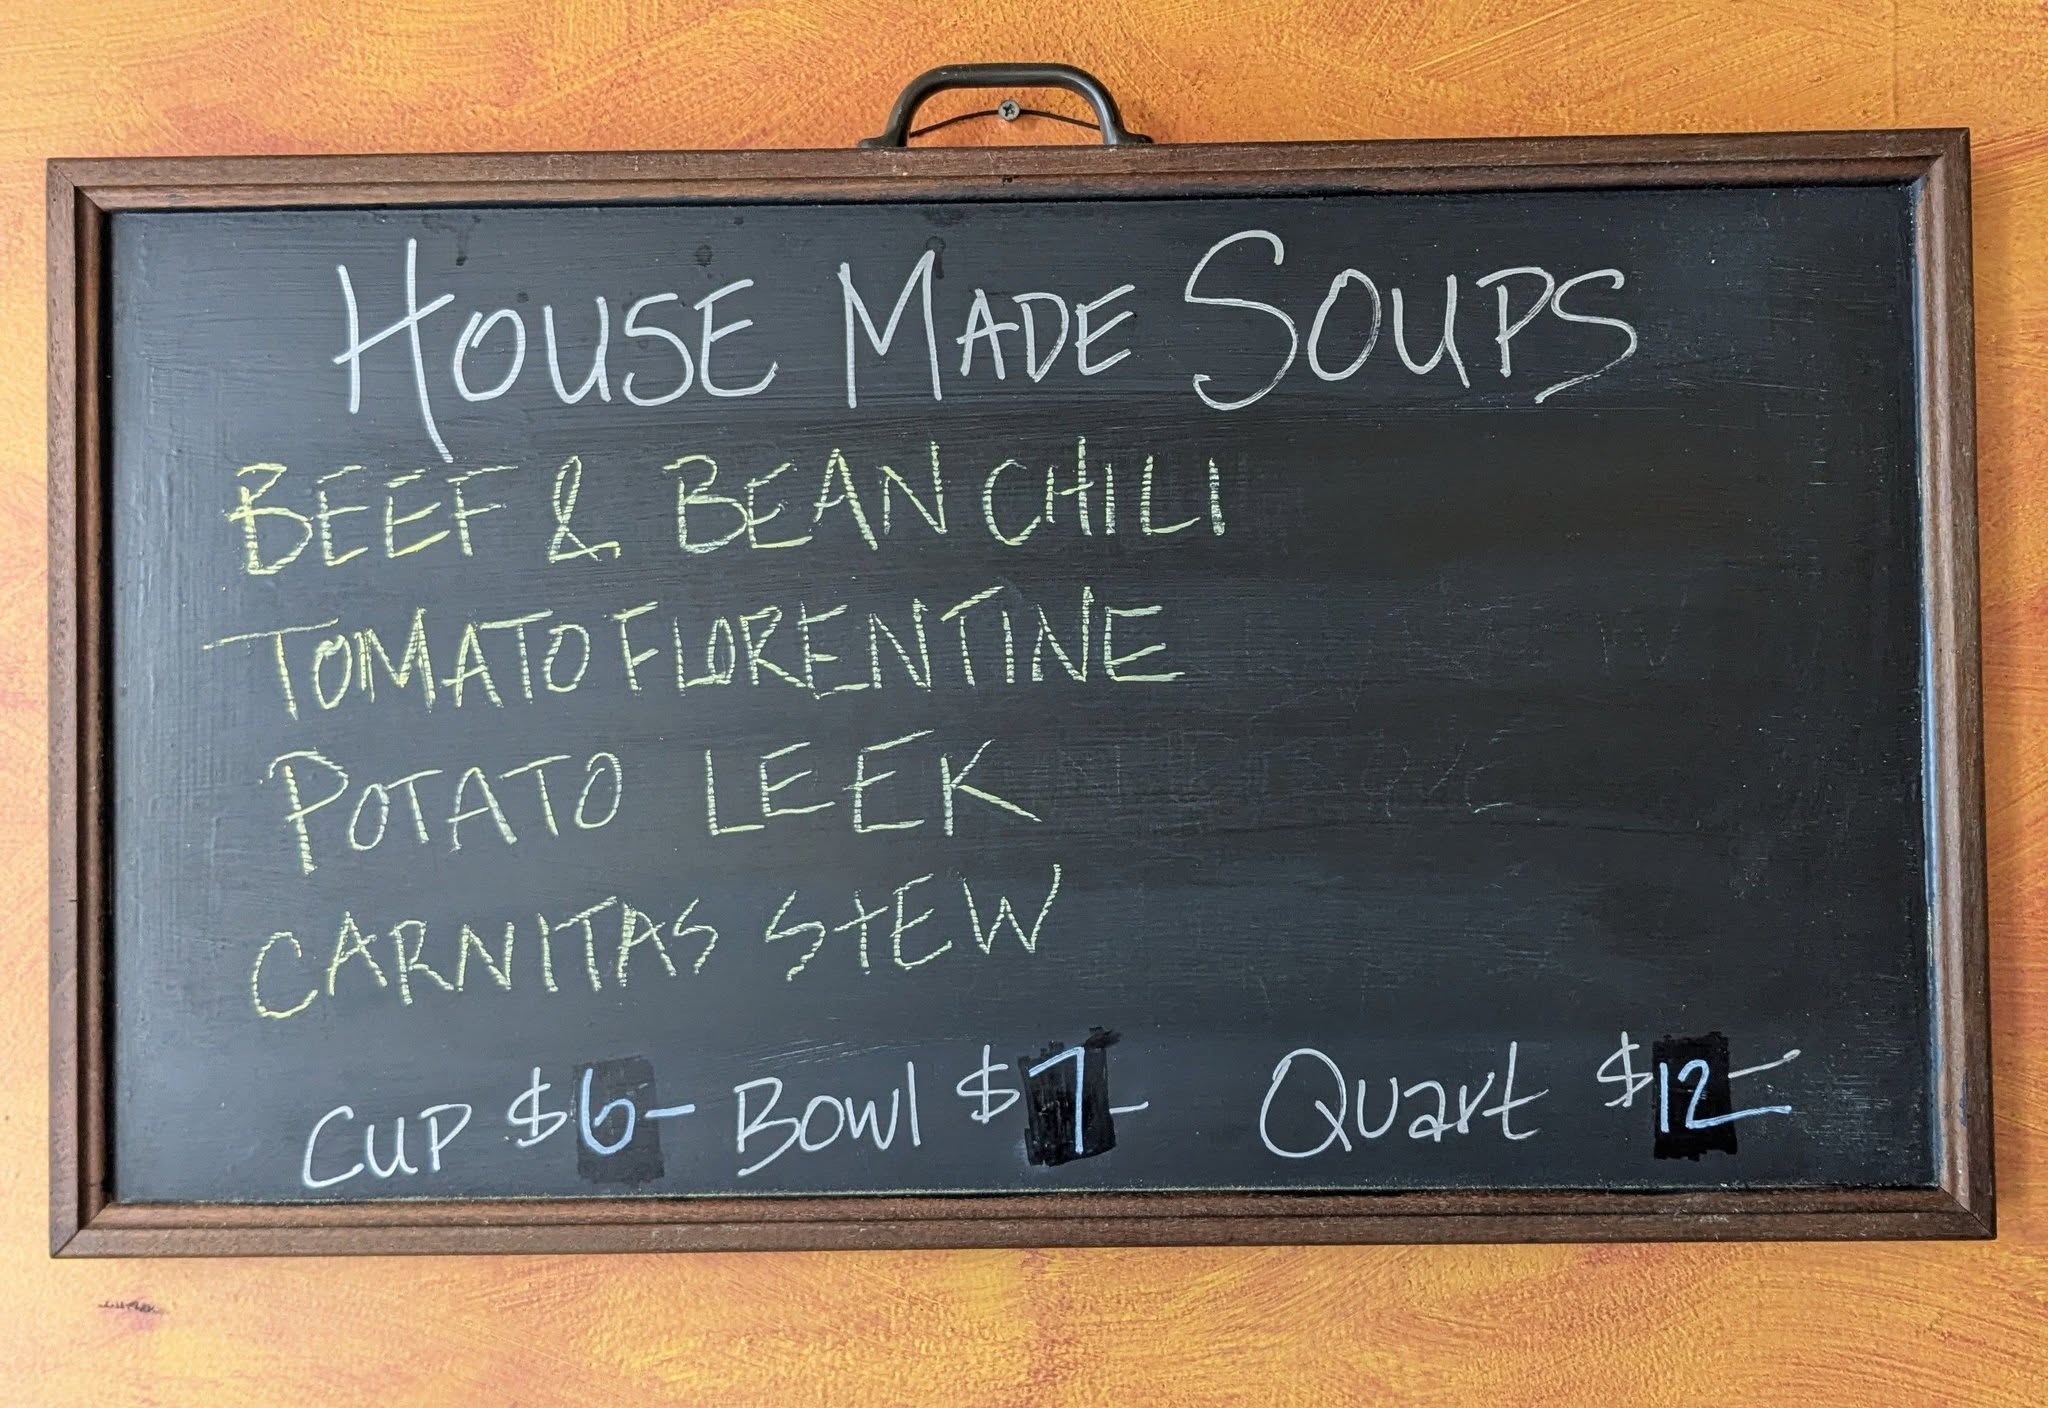 HOUSE MADE SOUPS
BEEF & BEAN CHILI
TOMATO FLORENTINE
POTATO LEEK
CARNITAS STEW
CUP $6- BOWl $7- QUART $12-